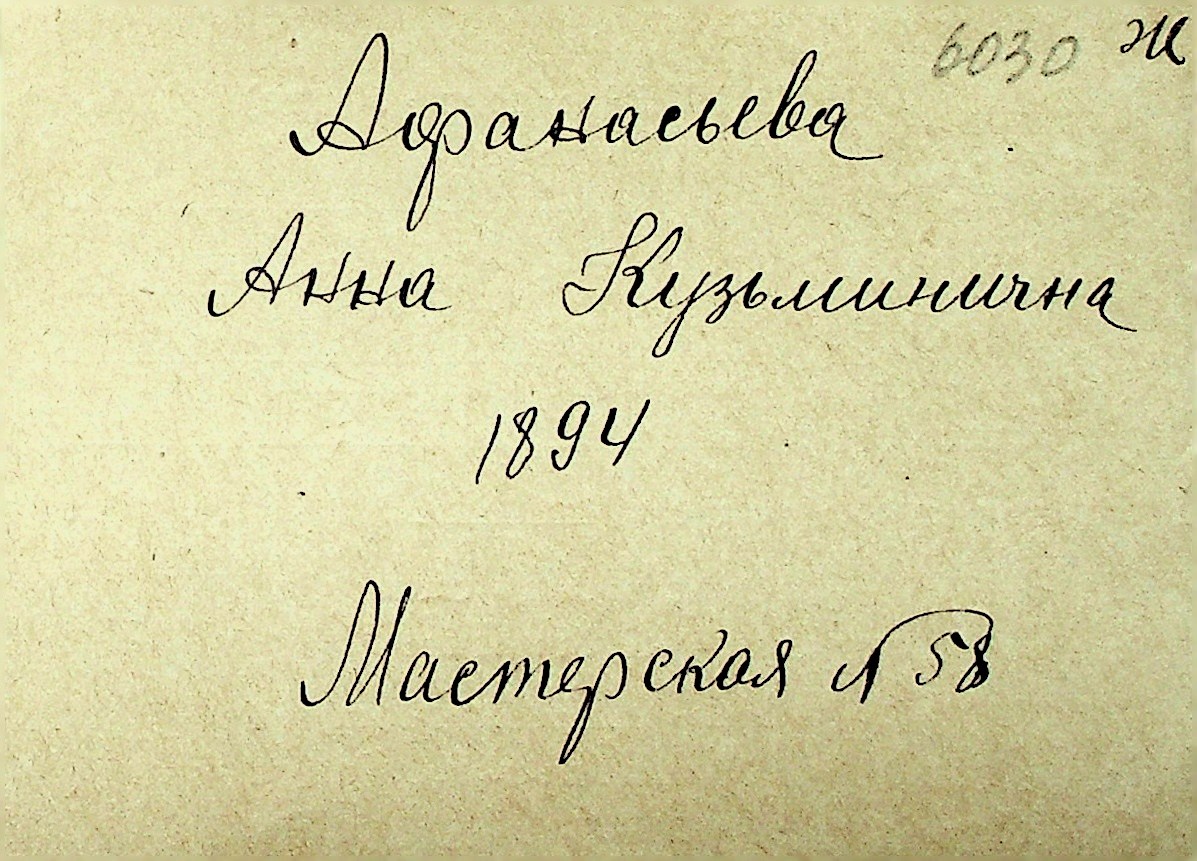 6030 Ж
Афанасьева
Анна Кузьминична
1894
Мастерская № 58